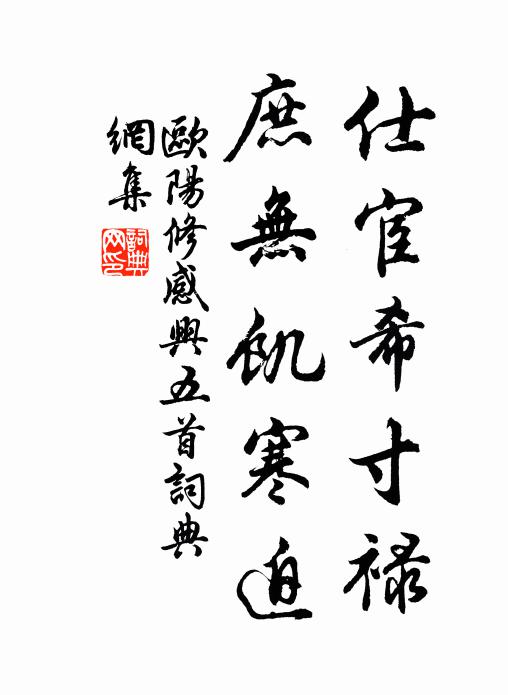 仕宦希寸禄
庶無飢寒迫
歐陽修感興五首詞典
網集
詞典
网印